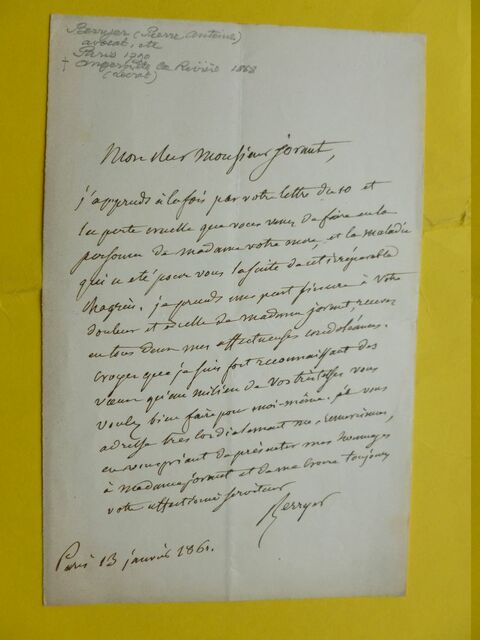 Berryer (Pierre Antoine)
avocat, etc
Paris 1790
† Angerville la Rivière 1868
(Loiret)
Mon cher Monsieur Jorant,
j'apprends à la fois par votre lettre du 10 et
la perte cruelle que vous venez de faire en la
personne de madame votre mère, et la maladie
qui a été pour vous la suite de cet irréparable
chagrin. je prends une part sincère à votre
douleur et à celle de madame jorant, recevez
en tous deux mes affectueuses condoléances.
croyez que je suis fort reconnaissant des
vœux qu'au milieu de vos tristesses vous
voulez bien faire pour moi-même. je vous
adresse très cordialement mes remerciemens,
en vous priant de présenter mes homages
à madame jorant et de me croire toujours
votre affectionné serviteur
Berryer
Paris 13 janvier 1861.